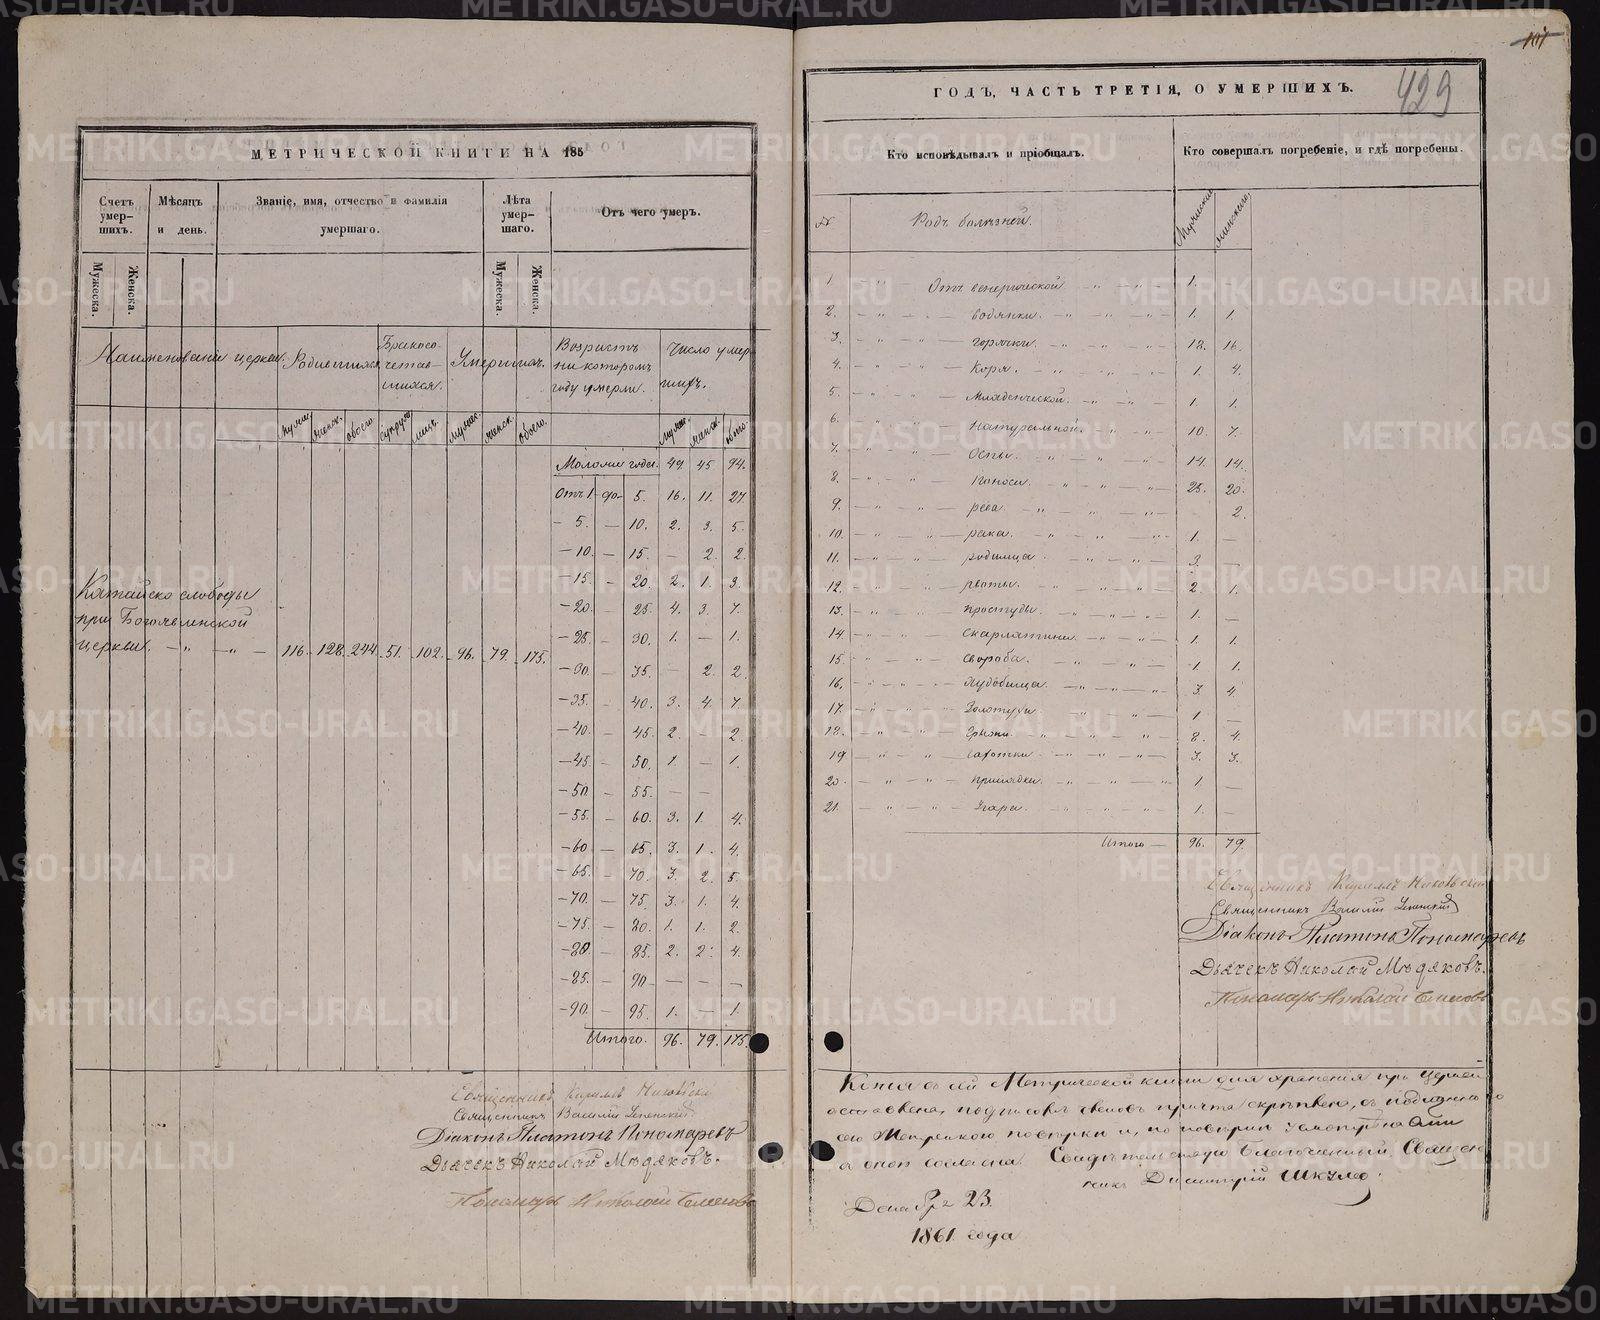 МЕТРИЧЕСКОЙ КНИГИ НА 185
Счетъ умер-шихъ.
Мѣсяцъ и день.
Званіе, имя, отчество и фамилія умершаго.
Лѣта умер-шаго.
Отъ чего умеръ.
Мужеска.
Женска.
Мужеска.
Женска.
Наименованіе церкви.
Родившихся
Бракосо-четав-шихся.
Умершихъ.
Возрастъ на которомъ году умерли.
Число умер-шихъ.
мужск. женск. обоего супруж. лицъ. мужск. женск. обоего. мужск. женск. обоего.
Моложе года. 49. 45 94.
Отъ 1 до 5. 16. 11. 27
- 5. — 10. 2. 3. 5.
- 10. — 15. — 2. 2.
- 15. — 20. 2. 1. 3.
- 20. — 25. 4. 3. 7.
- 25. — 30. 1. — 1.
- 30. — 35. — 2. 2.
- 35. — 40. 3. 4. 7.
- 40. — 45. 2. — 2.
- 45. — 50. 1. — 1.
- 50. — 55. — —
- 55. — 60. 3. 1. 4.
- 60 — 65. 3. 1. 4.
- 65. — 70. 3. 2. 5.
- 70. — 75. 3. 1. 4.
- 75. — 80. 1. 1. 2.
- 80. — 85. 2. 2. 4.
- 85. — 90 — — —
- 90. — 95. 1. — 1.
Итого. 96. 79. 175.
Катайско слободы
при Богоявленской
церкви. — " — " — 116. 128. 244 51. 102. 96. 79. 175.
Священникъ Кириллъ
Священникъ Василій
Діаконъ Платонъ Пономаревъ
Дьячекъ Николай Мѣдяковъ.
Пономарь Николай
101
429
ГОДЪ, ЧАСТЬ ТРЕТІЯ, О УМЕРШИХЪ.
Кто исповѣдывалъ и пріобщалъ.
Кто совершалъ погребеніе, и гдѣ погребены.
№ Родъ болѣзней. Мужеска Женскаго.
1 Отъ венерической 1.
2. водянки. 1. 1.
3. горячки 12. 16.
4. Коря. 1. 4.
5. Младенческой. 1. 1.
6. Натуральной. 10. 7.
7. Оспы. 14. 14.
8. Поноса. 25. 20.
9. рева. 2.
10. рака. 1. —
11. родимца 3.
12. рвоты. 2. 1.
13. простуды. 1. —
14. Скарлатины. 1. 1.
15. Свороба. 1 1.
16. Худобища. 3. 4.
17. Золотухи 1 —
18. Грыжи. 8. 4.
19 Чахотки 3. 3.
20. припадки. 1. —
21. 1. —
Итого — 96. 79.
Священникъ Кириллъ
Священникъ Василій
Діаконъ Платонъ Пономаревъ
Дьячекъ Николай Мѣдяковъ.
Пономарь Николай
Копія съ сей Метрической книги для храненія при Церкви
оставлена, подписомъ членовъ причта скрѣплена, съ
сею и, по
согласна. Благочинный, Священ-
никъ Димитрій
Декабря 23.
1861. года
METRIKI.GASO-URAL.RU